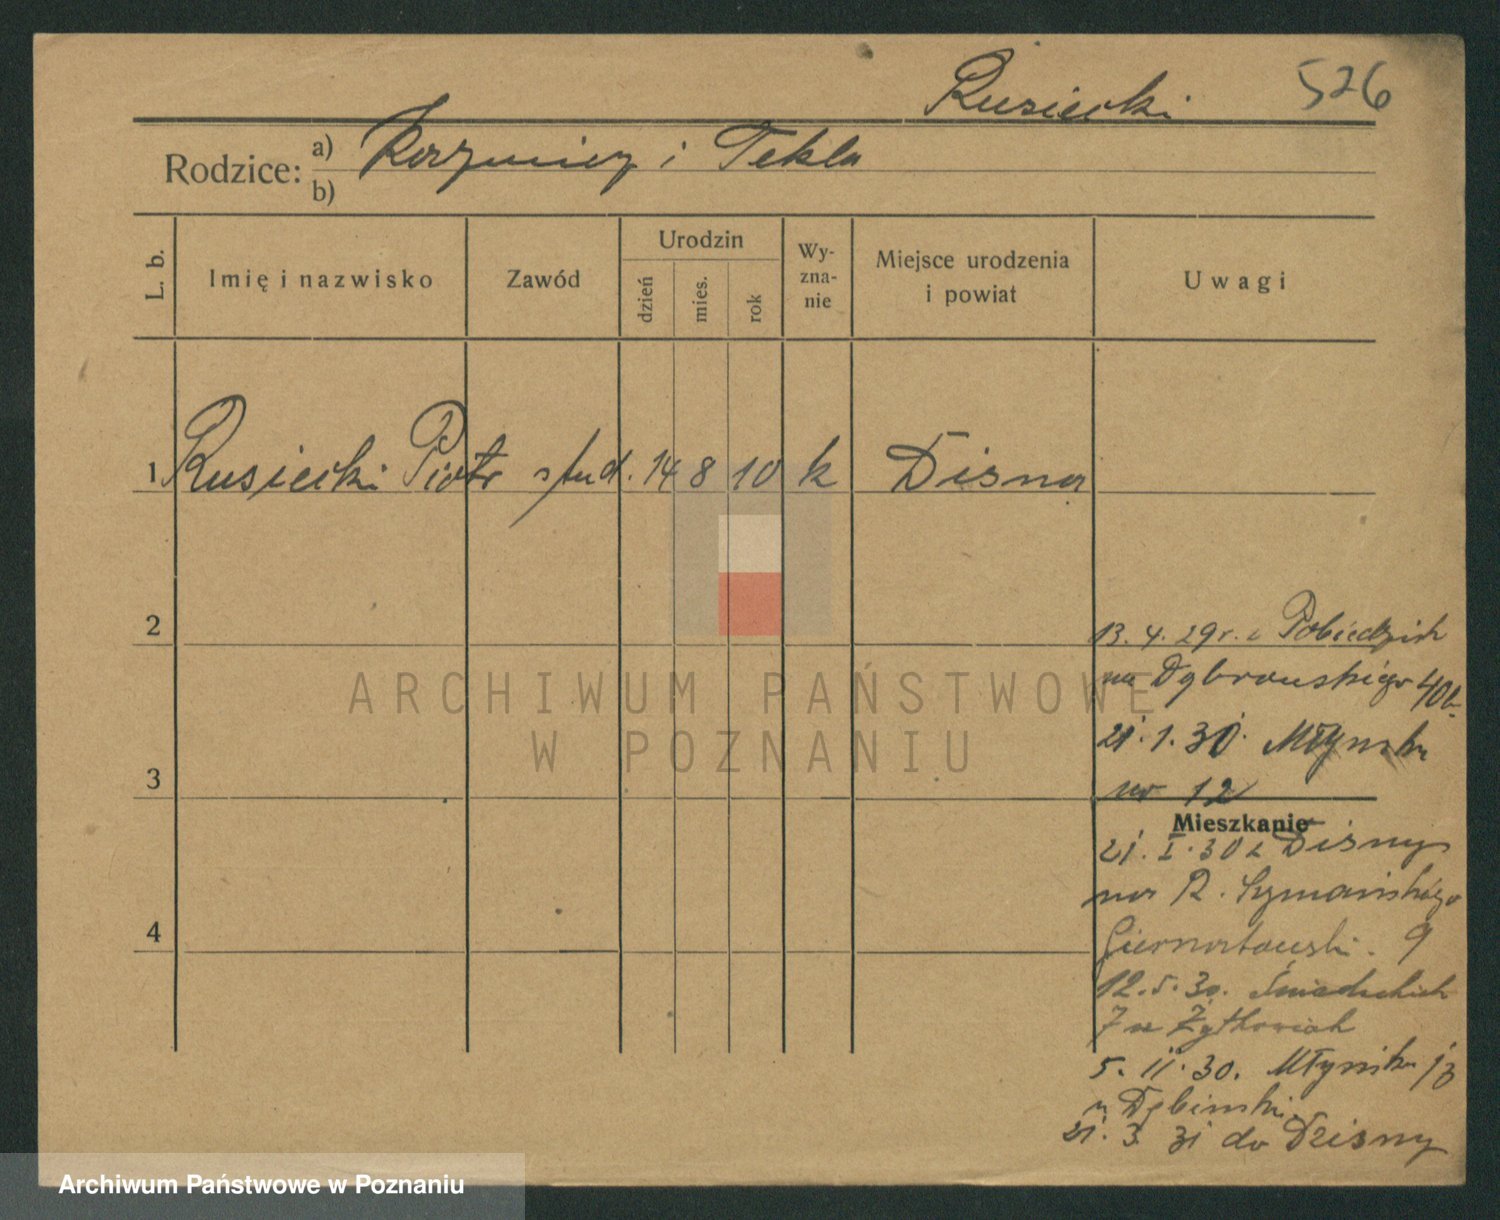 Rusiecki 526
Rodzice: a) Kazimierz i Tekla
b)
L. b. Imię i nazwisko Zawód Urodzin dzień mies. rok Wyznanie Miejsce urodzenia i powiat Uwagi
1 Rusiecki Piotr stud. 14 8 10 k Disna
2
13. 4. 29 r. z Pobiedzisk
na Dąbrowskiego 40
21. 1. 30. Młyńska
3
nr 12
Mieszkanie
21. I. 30 z Disny
na R. Szymańskiego
9
4
12. 5. 30. Śniadeckich
7 u
5. 11. 30. Młyńska
u Dębinski
21. 3. 31 do Dzisny
ARCHIWUM PAŃSTWOWE
W POZNANIU
Archiwum Państwowe w Poznaniu